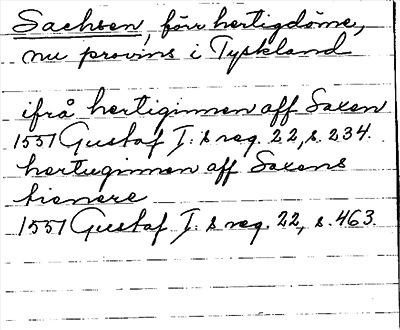 Sachsen, förr hertigdöme,
nu provins i Tyskland
ifrå hertiginnen aff Saxen
1551 Gustaf I:s reg. 22, s. 234.
hertuginnen aff Saxens
tienere
1551 Gustaf I:s reg. 22, s. 463.